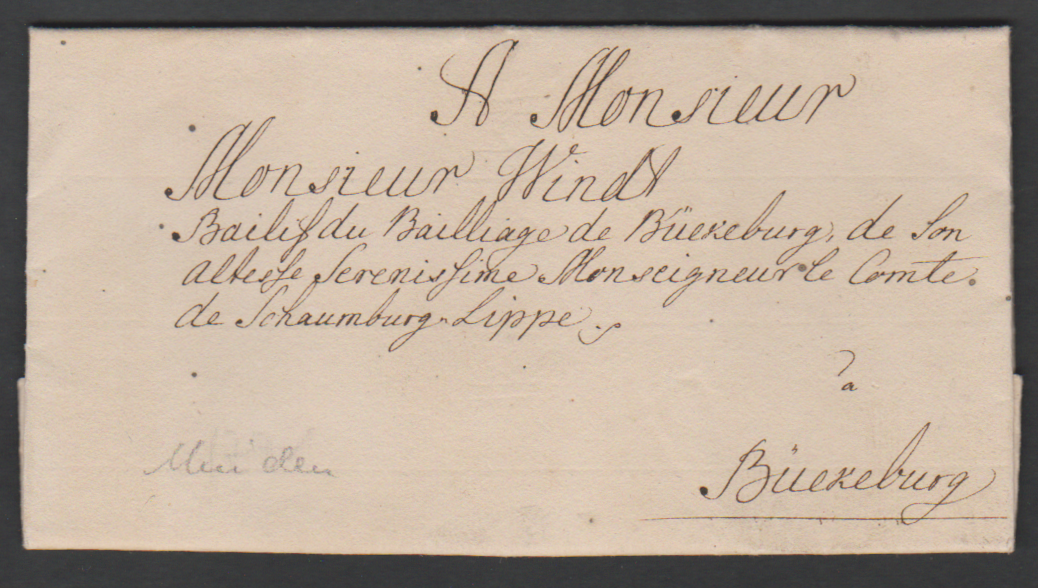 A Monsieur
Monsieur Windt
Bailif du Bailliage de Bückeburg, de Son
Altesse Serenissime Monseigneur le Comte
de Schaumburg-Lippe.
à
Bückeburg
Minden